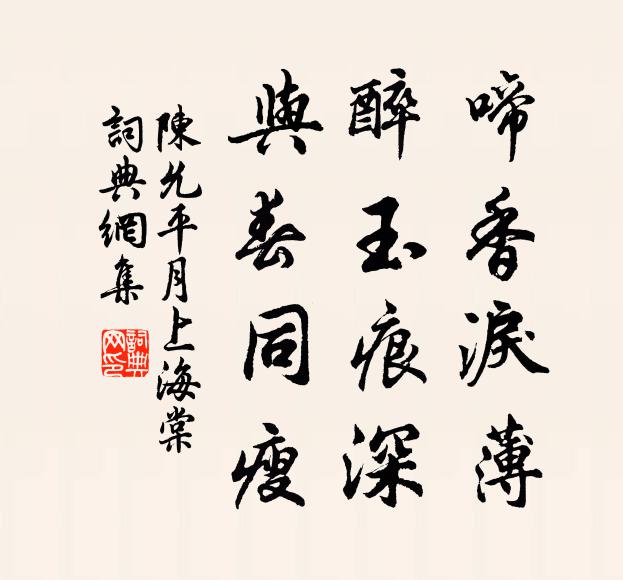 啼香淚薄
醉玉痕深
與春同瘦
陳允平月上海棠
詞典網集
詞典網印